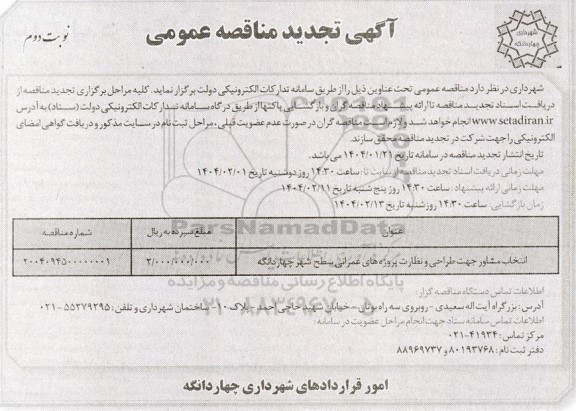 شهرداری
چهاردانگه
آگهی تجدید مناقصه عمومی
نوبت دوم
شهرداری در نظر دارد مناقصه عمومی تحت عناوین ذیل را از طریق سامانه تدارکات الکترونیکی دولت برگزار نماید. کلیه مراحل برگزاری تجدید مناقصه از
دریافت اسناد تجدید مناقصه تا ارائه پیشنهاد مناقصه گران و بازگشایی پاکتها از طریق درگاه سامانه تدارکات الکترونیکی دولت (ستاد) به آدرس
www.setadiran.ir انجام خواهد شد و لازم است مناقصه گران در صورت عدم عضویت قبلی، مراحل ثبت نام در سایت مذکور و دریافت گواهی امضای
الکترونیکی را جهت شرکت در تجدید مناقصه محقق سازند.
تاریخ انتشار تجدید مناقصه در سامانه تاریخ ۱۴۰۴/۰۱/۲۱ می باشد.
مهلت زمانی دریافت اسناد تجدید مناقصه از سایت تا: ساعت ۱۴:۳۰ روز دوشنبه تاریخ ۱۴۰۴/۰۲/۰۱
مهلت زمانی ارائه پیشنهاد: ساعت ۱۴:۳۰ روز پنج شنبه تاریخ ۱۴۰۴/۰۲/۱۱
زمان بازگشایی: ساعت ۱۴:۳۰ روز شنبه تاریخ ۱۴۰۴/۰۲/۱۳
عنوان مبلغ سپرده به ریال شماره مناقصه
انتخاب مشاور جهت طراحی و نظارت پروژه های عمرانی سطح شهر چهاردانگه ۲/۰۰۰/۰۰۰/۰۰۰ ۲۰۰۴۰۹۴۵۰۰۰۰۰۰۰۱
ParsNamadData
پایگاه اطلاع رسانی مناقصه و مزایده
اطلاعات تماس دستگاه مناقصه گزار:
آدرس: بزرگراه آیت اله سعیدی - روبروی سه راه بوتان - خیابان شهید حاجی احمد - پلاک ۱۰ - ساختمان شهرداری و تلفن: ۵۵۳۷۹۲۹۵-۰۲۱
اطلاعات تماس سامانه ستاد جهت انجام مراحل عضویت در سامانه:
مرکز تماس: ۴۱۹۳۴-۰۲۱
دفتر ثبت نام: ۸۰۱۹۳۷۶۸ و ۸۸۹۶۹۷۳۷
امور قراردادهای شهرداری چهاردانگه